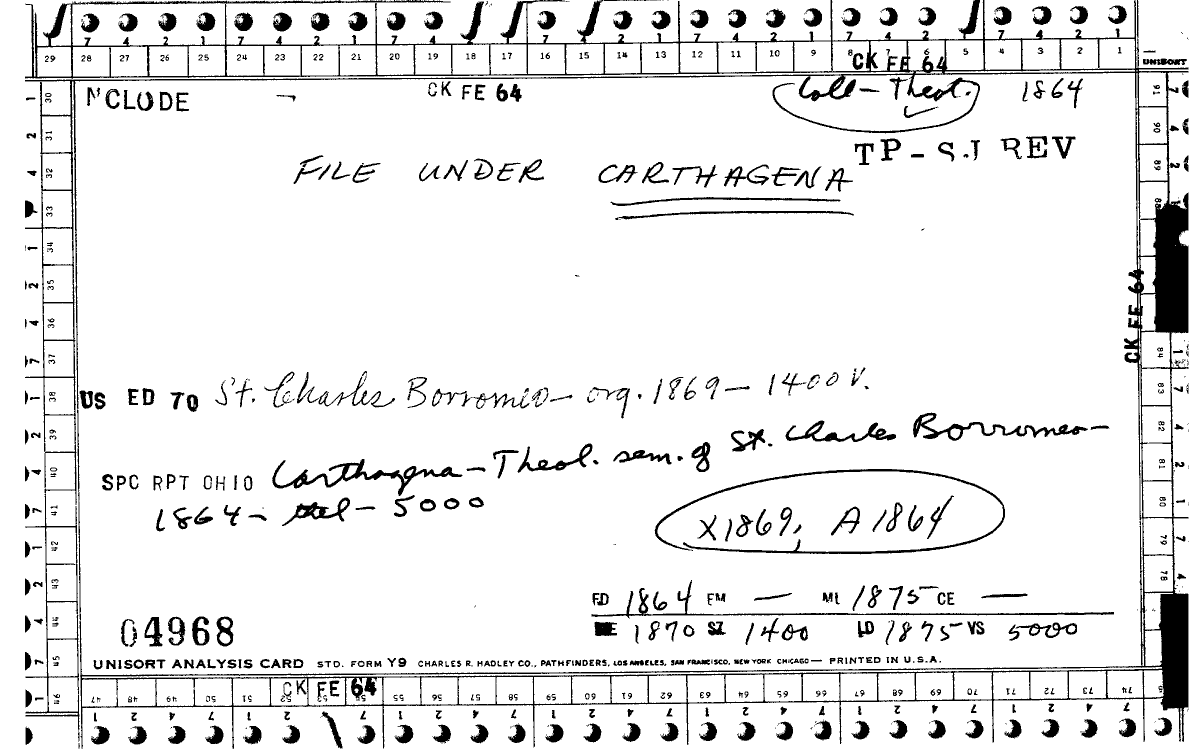 7 4 2 1 7 4 2 1 7 4 2 1 7 4 2 1 7 4 2 1 7 4 2 1
29 28 27 26 25 24 23 22 21 20 19 18 17 16 15 14 13 12 11 10 9 8 7 6 5 4 3 2 1 UNISORT
CK FE 64
NCLODE CK FE 64 Coll - Theol. 1864
TP - SJ REV
FILE UNDER CARTHAGENA
CK FE 64
US ED 70 St. Charles Borromeo - org. 1869 - 1400 v.
SPC RPT OHIO Carthagena - Theol. sem. of St. Charles Borromeo -
1864 - - 5000
X1869, A 1864
FD 1864 FM — ML 1875 CE —
E 1870 SZ 1400 LD 1875 VS 5000
04968
UNISORT ANALYSIS CARD STD. FORM Y9 CHARLES R. HADLEY CO., PATHFINDERS, LOS ANGELES, SAN FRANCISCO, NEW YORK CHICAGO — PRINTED IN U.S.A.
CK FE 64
47 48 49 50 51 52 53 54 55 56 57 58 59 60 61 62 63 64 65 66 67 68 69 70 71 72 73 74